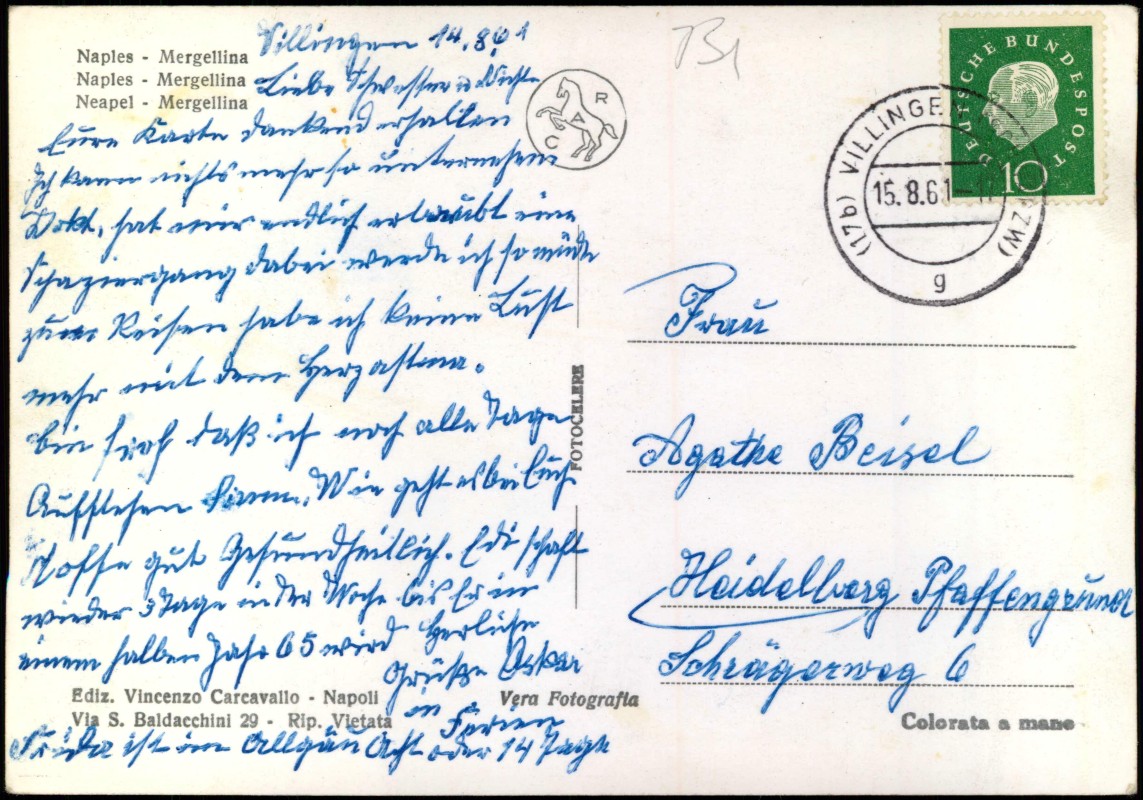 Villingen 14.8.61
Naples - Mergellina
Naples - Mergellina
Neapel - Mergellina
Liebe Schwester u. Nichte
Eure Karte dankend erhalten
Ich kann nichts mehr so unternehmen
Dokt. hat mir endlich erlaubt eine
Schaziergang dabei werde ich so müde
zum Reisen habe ich keine Lust
mehr mit dem Herzastma.
bin froh daß ich noch alle Tage
Aufstehen kann. Wie geht es bei Euch
Hoffe gut Gesundheitlich. Edi schafft
wieder 3 Tage in der Woche bis Er in
einem halben Jahr 65 wird Herliche
Grüße Oskar
Ediz. Vincenzo Carcavallo - Napoli
Via S. Baldacchini 29 - Rip. Vietata
Vera Fotografia
in Ferien
Frida ist im Allgäu Acht oder 14 Tage
R A C
FOTOCELERE
DEUTSCHE BUNDESPOST
10
(17b) VILLINGEN
15.8.61
ZW)
g
Frau
Agathe Beisel
Heidelberg Pfaffengrund
Schrägerweg 6
Colorata a mano